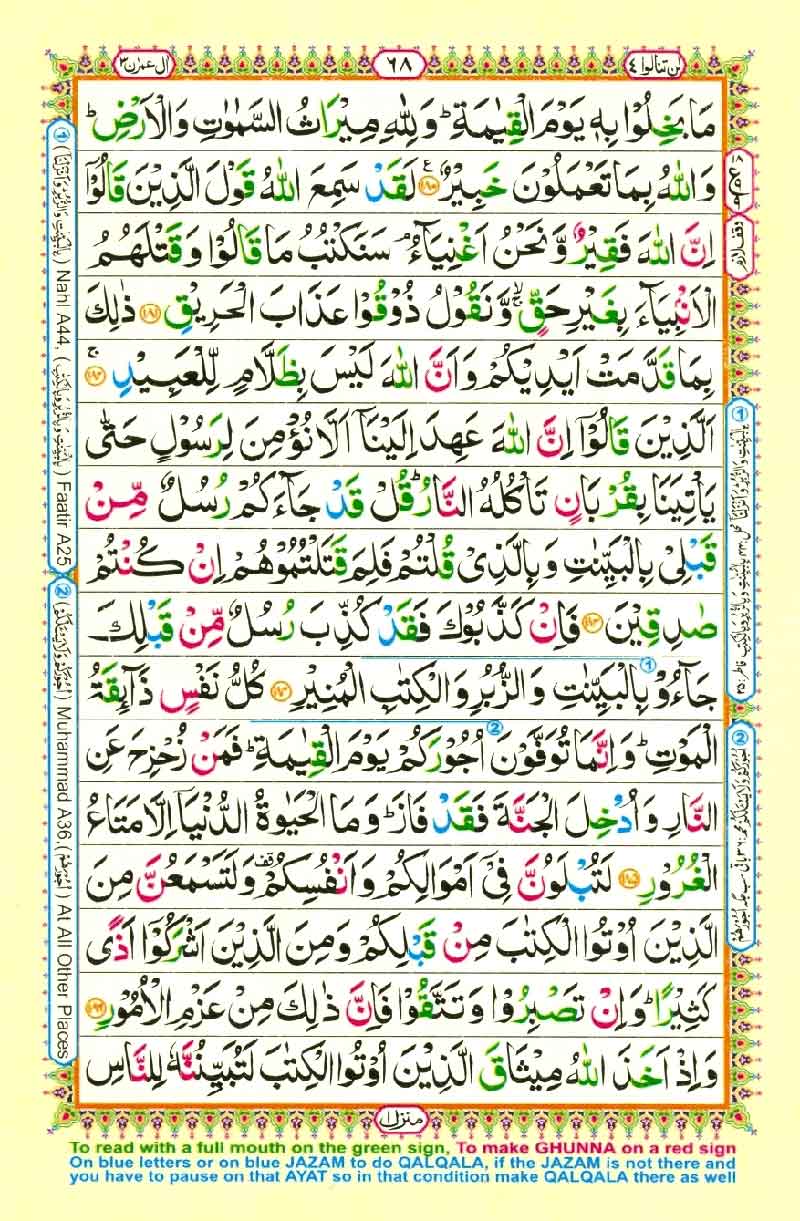 لن تنالوا ٤
٦٨
اٰل عمرٰن ٣
مَا بَخِلُوْا بِهٖ يَوْمَ الْقِيٰمَةِ ؕ وَلِلّٰهِ مِيْرَاثُ السَّمٰوٰتِ وَالْاَرْضِ ؕ
وَاللّٰهُ بِمَا تَعْمَلُوْنَ خَبِيْرٌ ﴿۱۸۰﴾ لَقَدْ سَمِعَ اللّٰهُ قَوْلَ الَّذِيْنَ قَالُوْۤا
اِنَّ اللّٰهَ فَقِيْرٌ وَّنَحْنُ اَغْنِيَآءُ ۘ سَنَكْتُبُ مَا قَالُوْا وَقَتْلَهُمُ
الْاَنْۢبِيَآءَ بِغَيْرِ حَقٍّ ۙ وَّنَقُوْلُ ذُوْقُوْا عَذَابَ الْحَرِيْقِ ﴿۱۸۱﴾ ذٰلِكَ
بِمَا قَدَّمَتْ اَيْدِيْكُمْ وَاَنَّ اللّٰهَ لَيْسَ بِظَلَّامٍ لِّلْعَبِيْدِ ﴿۱۸۲﴾ ۚ
اَلَّذِيْنَ قَالُوْۤا اِنَّ اللّٰهَ عَهِدَ اِلَيْنَاۤ اَلَّا نُؤْمِنَ لِرَسُوْلٍ حَتّٰى
يَاْتِيَنَا بِقُرْبَانٍ تَاْكُلُهُ النَّارُ ؕ قُلْ قَدْ جَآءَكُمْ رُسُلٌ مِّنْ
قَبْلِىْ بِالْبَيِّنٰتِ وَبِالَّذِىْ قُلْتُمْ فَلِمَ قَتَلْتُمُوْهُمْ اِنْ كُنْتُمْ
صٰدِقِيْنَ ﴿۱۸۳﴾ فَاِنْ كَذَّبُوْكَ فَقَدْ كُذِّبَ رُسُلٌ مِّنْ قَبْلِكَ
جَآءُوْ بِالْبَيِّنٰتِ وَالزُّبُرِ وَالْكِتٰبِ الْمُنِيْرِ ﴿۱۸۴﴾ كُلُّ نَفْسٍ ذَآئِقَةُ
الْمَوْتِ ؕ وَاِنَّمَا تُوَفَّوْنَ اُجُوْرَكُمْ يَوْمَ الْقِيٰمَةِ ؕ فَمَنْ زُحْزِحَ عَنِ
النَّارِ وَاُدْخِلَ الْجَنَّةَ فَقَدْ فَازَ ؕ وَمَا الْحَيٰوةُ الدُّنْيَاۤ اِلَّا مَتَاعُ
الْغُرُوْرِ ﴿۱۸۵﴾ لَتُبْلَوُنَّ فِىْۤ اَمْوَالِكُمْ وَاَنْفُسِكُمْ ۟ وَلَتَسْمَعُنَّ مِنَ
الَّذِيْنَ اُوْتُوا الْكِتٰبَ مِنْ قَبْلِكُمْ وَمِنَ الَّذِيْنَ اَشْرَكُوْۤا اَذًى
كَثِيْرًا ؕ وَاِنْ تَصْبِرُوْا وَتَتَّقُوْا فَاِنَّ ذٰلِكَ مِنْ عَزْمِ الْاُمُوْرِ ﴿۱۸۶﴾
وَاِذْ اَخَذَ اللّٰهُ مِيْثَاقَ الَّذِيْنَ اُوْتُوا الْكِتٰبَ لَتُبَيِّنُنَّهٗ لِلنَّاسِ
① (بِالْبَيِّنٰتِ وَالزُّبُرِ وَاَنْزَلْنَاۤ) Nahl A44, (بِالْبَيِّنٰتِ وَبِالزُّبُرِ وَبِالْكِتٰبِ) Faatir A25
② (اُجُوْرَكُمْ وَلَا يَسْـَٔلْكُمْ) Muhammad A36, (اُجُوْرَهُمْ) At All Other Places
منزل ١
To read with a full mouth on the green sign, To make GHUNNA on a red sign
On blue letters or on blue JAZAM to do QALQALA, if the JAZAM is not there and
you have to pause on that AYAT so in that condition make QALQALA there as well